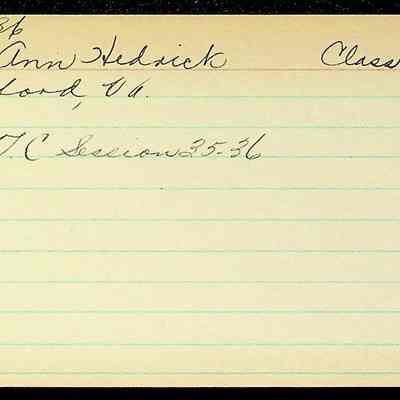 36
Ann Hedrick Class
ford, Va.
T.C Session 35-36